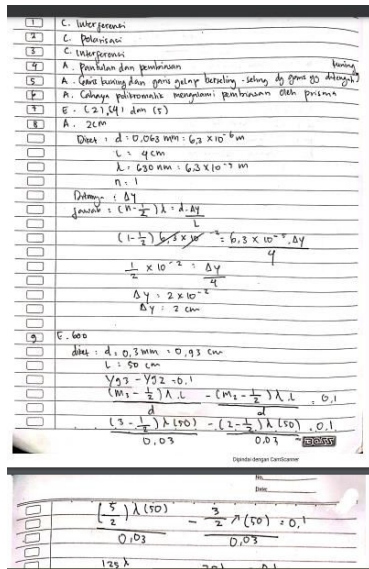 1 C. Interferensi
2 C. Polarisasi
3 C. Interferensi
4 A. Pantulan dan pembiasan
5 A. Garis kuning dan garis gelap berseling-seling dg garis yg ditengah kuning
6 A. Cahaya politromatis mengalami pembiasan oleh prisma
7 E. (2), (4) dan (5)
8 A. 2 cm
Diket : d = 0,063 mm = 6,3 × 10⁻⁶ m
L = 4 cm
λ = 630 nm = 6,3 × 10⁻⁷ m
n = 1
Ditanya : Δy
Jawab : (n - 1/2) λ = d . Δy / L
(1 - 1/2) 6,3 × 10⁻² = 6,3 × 10⁻⁵ . Δy / 4
1/2 × 10⁻² = Δy / 4
Δy = 2 × 10⁻²
Δy = 2 cm
9 E. 600
diket : d = 0,3 mm = 0,93 cm
L = 50 cm
Yg3 - Yg2 = 0,1
(m₃ - 1/2) λ . L / d - (m₂ - 1/2) λ . L / d = 0,1
(3 - 1/2) λ (50) / 0,03 - (2 - 1/2) λ (50) / 0,03 = 0,1
Dipindai dengan CamScanner
No.
Date:
(5/2) λ (50) / 0,03 - 3/2 λ (50) / 0,03 = 0,1
125 λ